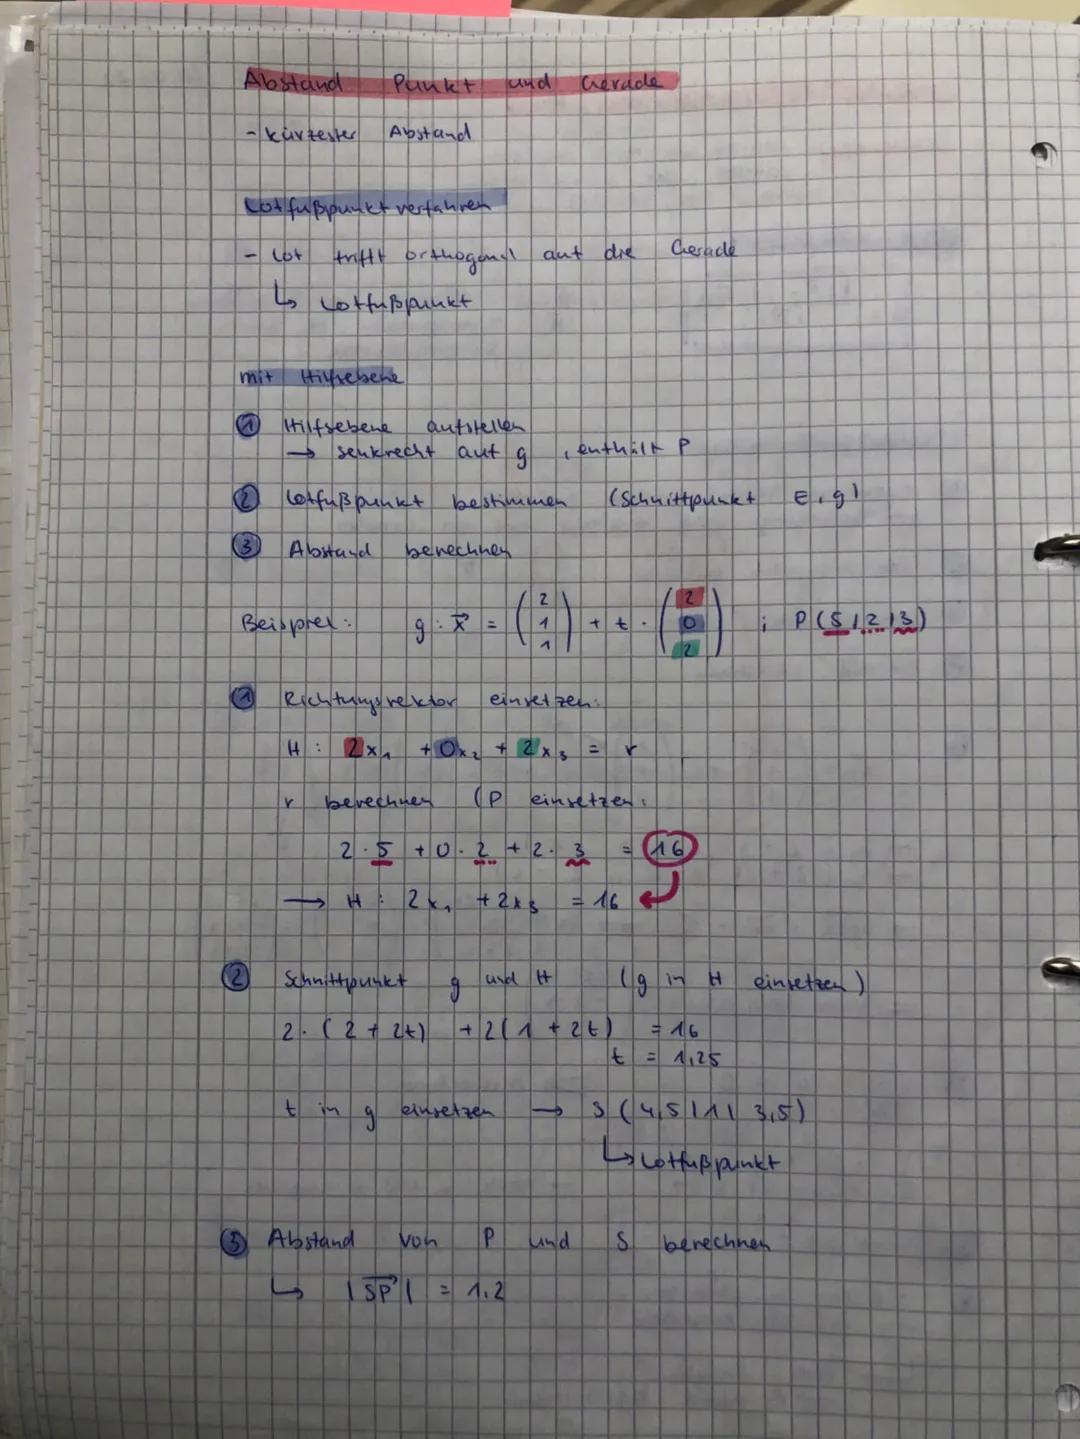 Abstand Punkt und Gerade
- kürzester Abstand
Lotfußpunktverfahren
- Lot trifft orthogonal auf die Gerade
↳ Lotfußpunkt
mit Hilfsebene
① Hilfsebene aufstellen
→ senkrecht auf g , enthält P
② Lotfußpunkt bestimmen (Schnittpunkt E, g)
③ Abstand berechnen
Beispiel: g: x⃗ = (2 1 1) + t · (2 0 2) ; P(5|2|3)
① Richtungsvektor einsetzen:
H: 2x₁ + 0x₂ + 2x₃ = r
r berechnen (P einsetzen:
2·5 + 0·2 + 2·3 = 16
→ H: 2x₁ + 2x₃ = 16
② Schnittpunkt g und H (g in H einsetzen)
2·(2+2t) + 2(1+2t) = 16
t = 1,25
t in g einsetzen → S(4,5|1|3,5)
↳ Lotfußpunkt
③ Abstand von P und S berechnen
↳ |SP⃗| = 1,2